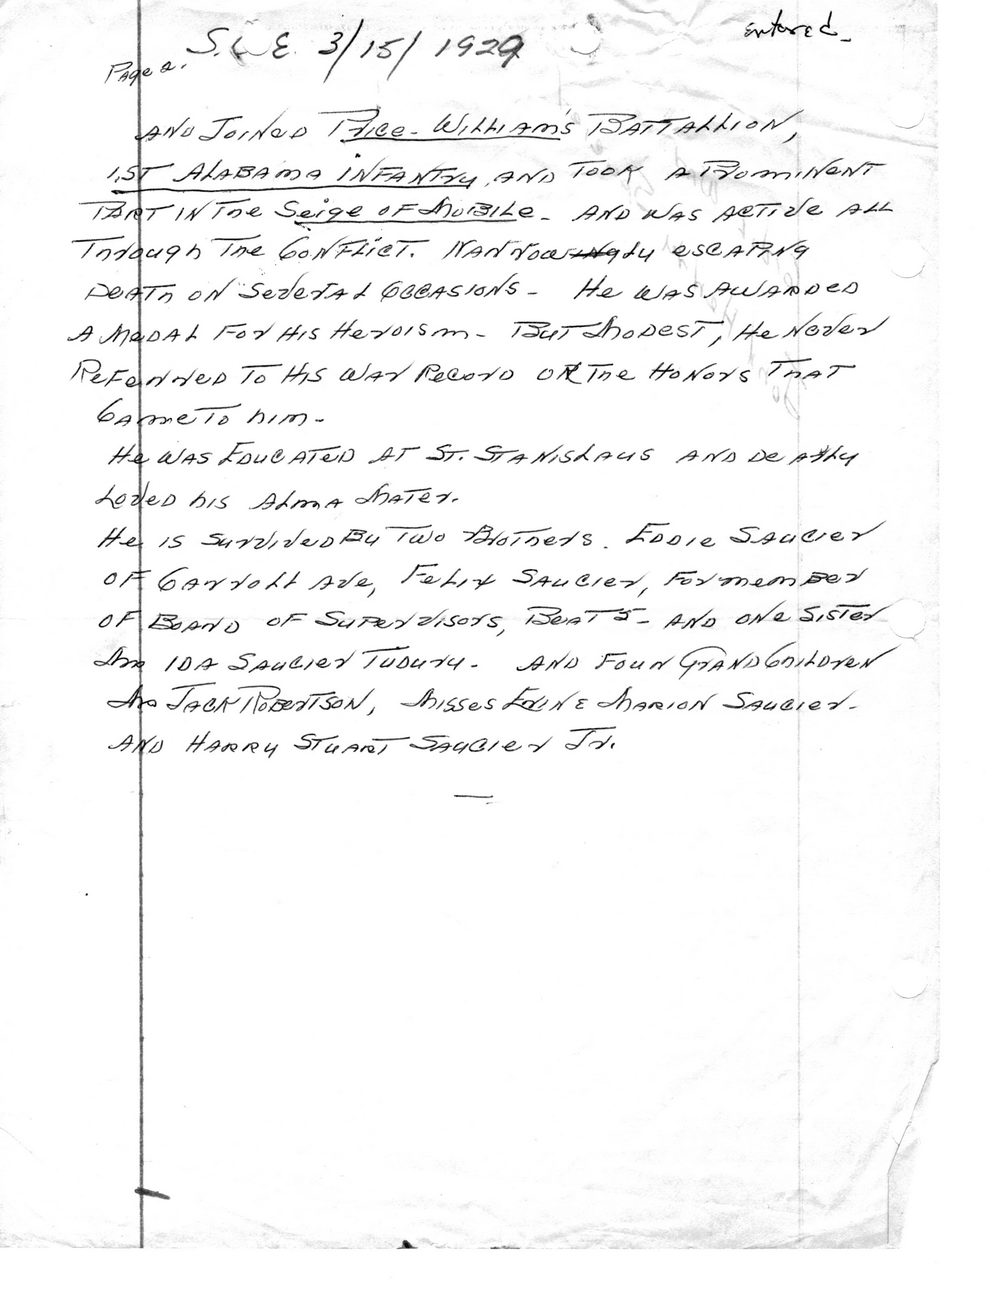 entered-
S.C.E. 3/15/1929
Page 2.
AND JOINED Price-Williams BATTALLION,
1ST ALABAMA INFANTRY, AND TOOK A PROMINENT
PART IN THE Seige OF MOBILE. AND WAS ACTIVE ALL
THROUGH THE CONFLICT. NARROWLY ESCAPING
DEATH ON SEVERAL OCCASIONS - HE WAS AWARDED
A MEDAL FOR HIS HEROISM - BUT MODEST, HE NEVER
REFERRED TO HIS WAR RECORD OR THE HONORS THAT
CAME TO HIM -
HE WAS EDUCATED AT ST. STANISLAUS AND DEARLY
LOVED HIS ALMA MATER.
HE IS SURVIVED BY TWO BROTHERS. EDDIE SAUCIER
OF CARROLL AVE, FELIX SAUCIER, FORMEMBER
OF BOARD OF SUPERVISORS, BEAT 5 - AND ONE SISTER
Mrs IDA SAUCIER TUDURY - AND FOUR GRANDCHILDREN
Mrs JACK ROBERTSON, MISSES MARION SAUCIER -
AND HARRY STUART SAUCIER JR.